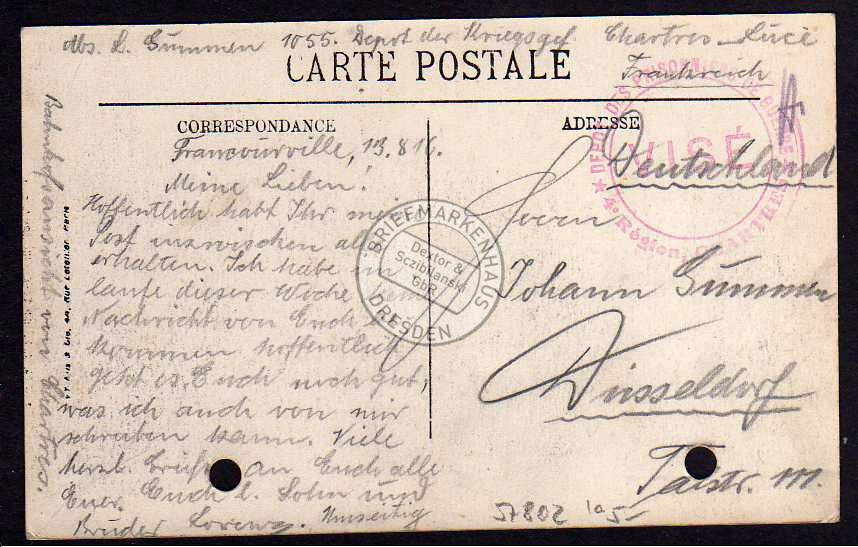 Abs. L. Gümmen 1055. Depot der Kriegsgef. Chartres-Lucé
Frankreich
CARTE POSTALE
CORRESPONDANCE
ADRESSE
Francourville, 13.8 16.
Meine Lieben!
Hoffentlich habt Ihr meine
Post inzwischen all
erhalten. Ich habe im
laufe dieser Woche keine
Nachricht von Euch
kommen hoffentlich
geht es Euch noch gut,
was ich auch von mir
schreiben kann. Viele
herzl. Grüße an Euch alle
Euer Euch l. Sohn und
Bruder Lorenz. Umseitig
Bahnhofsansicht von Chartres.
DEPOT DES PRISONNIERS DE GUERRE
VISÉ
4e Région, CHARTRES
Deutschland
Herrn
Johann Gümmen
Düsseldorf
Talstr. 111.
BRIEFMARKENHAUS
Dextor &
Sczibilanski
GbR
DRESDEN
57802 5-